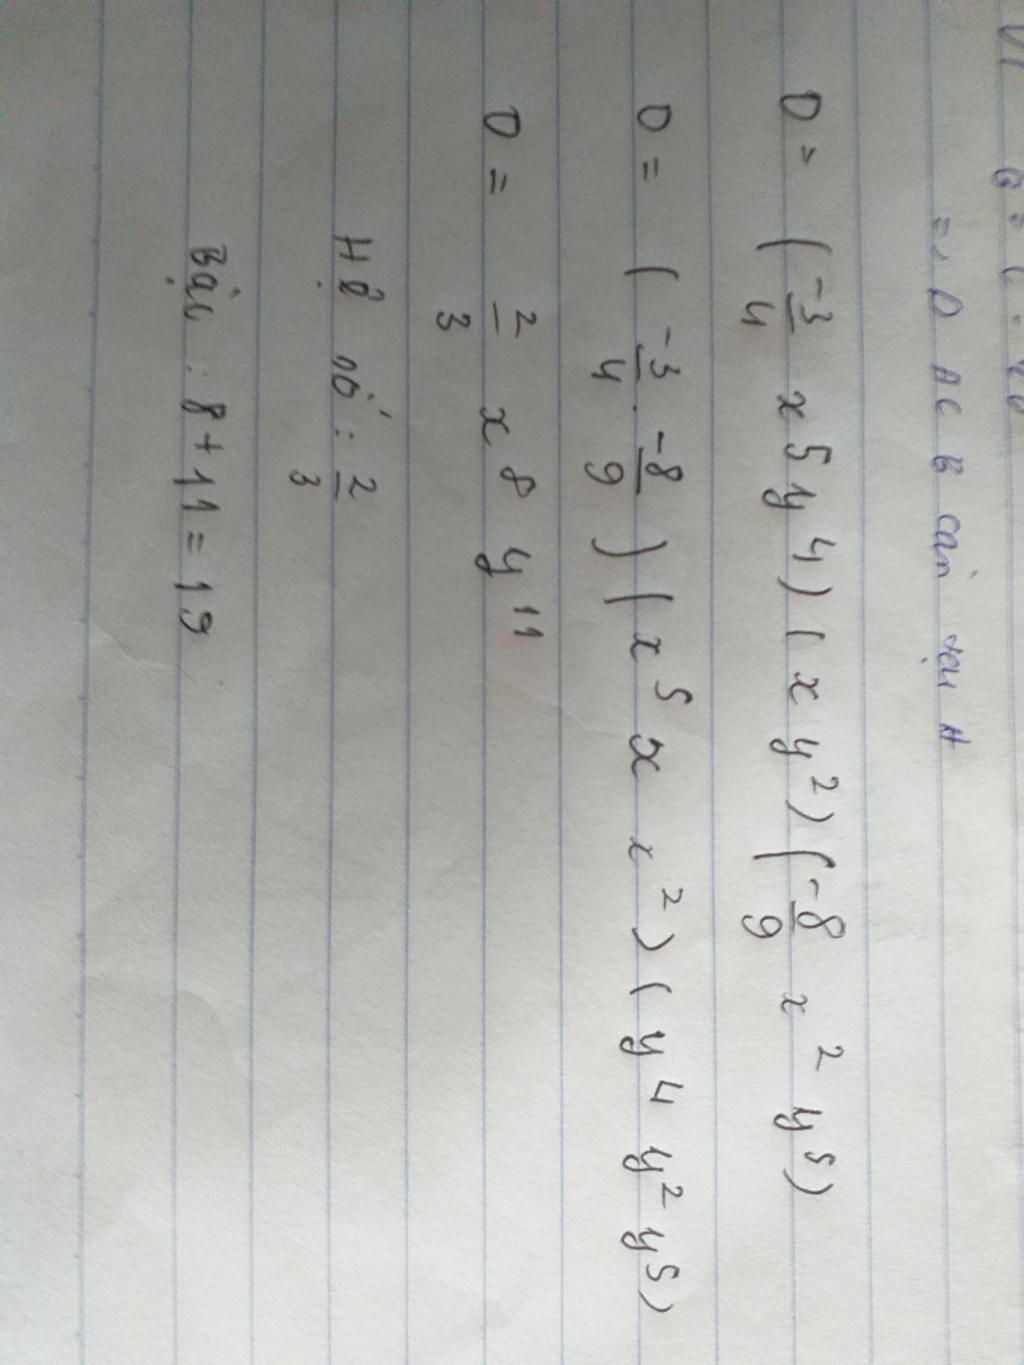 => D ACB cân tại A
D = (-3/4 x^5 y^4) (x y^2) (-8/9 x^2 y^5)
D = (-3/4 . -8/9) (x^5 x x^2) (y^4 y^2 y^5)
D = 2/3 x^8 y^11
Hệ số : 2/3
Bậc : 8 + 11 = 19